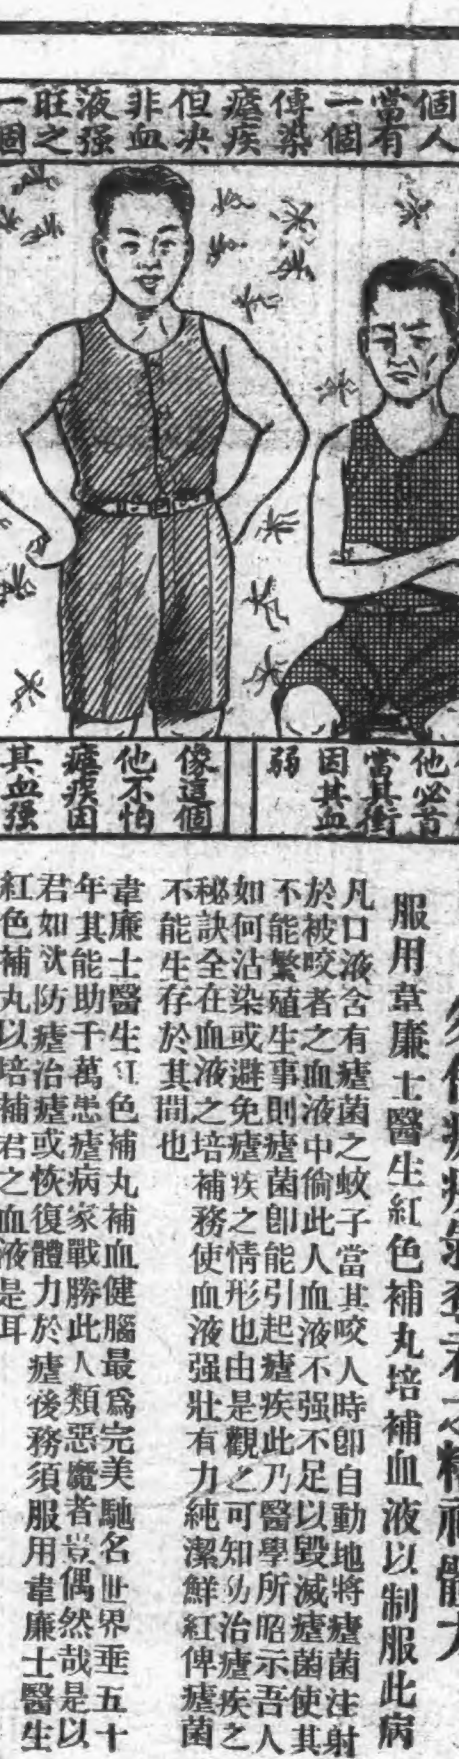 個人
當有
一個
傳染
瘧疾
但决
非血
液强
旺之
一個
他必首
當其衝
因其血
弱
像這個
他不怕
瘧疾因
其血强
服用韋廉士醫生紅色補丸培補血液以制服此病
凡口液含有瘧菌之蚊子當其咬人時卽自動地將瘧菌注射
於被咬者之血液中倘此人血液不强不足以毀滅瘧菌使其
不能繁殖生事則瘧菌卽能引起瘧疾此乃醫學所昭示吾人
如何沾染或避免瘧疾之情形也由是觀之可知防治瘧疾之
秘訣全在血液之培補務使血液强壯有力純潔鮮紅俾瘧菌
不能生存於其間也
韋廉士醫生紅色補丸補血健腦最爲完美馳名世界垂五十
年其能助千萬患瘧病家戰勝此人類惡魔者豈偶然哉是以
君如欲防瘧治瘧或恢復體力於瘧後務須服用韋廉士醫生
紅色補丸以培補君之血液是耳